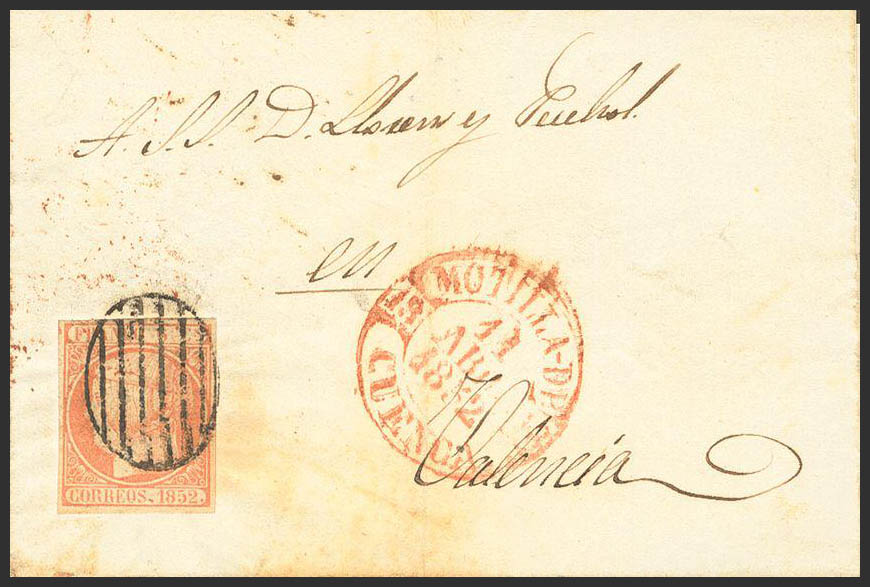 A. S.S. D. Llorens y Puchol.
en
MOTILLA-DEL
11
ABR
1852
CUENCA
Valencia
CORREOS. 1852.